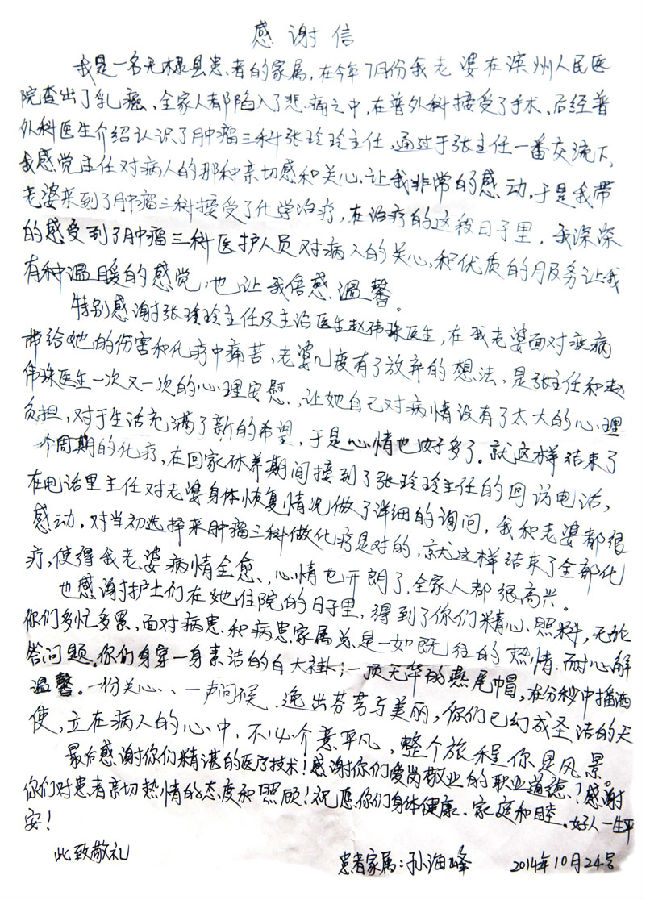 感谢信
我是一名无棣县患者的家属,在今年7月份我老婆在滨州人民医
院查出了乳癌,全家人都陷入了悲痛之中,在普外科接受了手术,后经普
外科医生介绍认识了肿瘤三科张玲玲主任,通过于张主任一番交流下,
我感觉主任对病人的那种亲切感和关心,让我非常的感动,于是我带
老婆来到了肿瘤三科接受了化学治疗,在治疗的这段日子里,我深深
的感受到了肿瘤三科医护人员对病人的关心,和优质的服务让我
有种温暖的感觉,也让我倍感温馨。
特别感谢张玲玲主任及主治医生赵伟珠医生,在我老婆面对疾病
带给她的伤害和化疗中痛苦,老婆几度有了放弃的想法,是张主任和赵
伟珠医生一次又一次的心理安慰,让她自己对病情没有了太大的心理
负担,对于生活充满了新的希望,于是心情也好多了。就这样结束了
个周期的化疗,在回家休养期间接到了张玲玲主任的回访电话,
在电话里主任对老婆身体恢复情况做了详细的询问,我和老婆都很
感动,对当初选择来肿瘤三科做化疗是对的,就这样结束了全部化
疗,使得我老婆病情全愈、心情也开朗了,全家人都很高兴。
也感谢护士们在她住院的日子里,得到了你们精心照料,无论
你们多忙多累,面对病患和病患家属总是一如既往的热情而心解
答问题。你们身穿一身素洁的白大褂;一顶无华的燕尾帽,在分秒中播洒
温馨。一份关心、一声问候,逸出芬芳与美丽,你们已幻成圣洁的天
使,立在病人的心中,不必介意平凡,整个旅程你是风景
最后感谢你们精湛的医疗技术!感谢你们爱岗敬业的职业道德!感谢
你们对患者亲切热情的态度和照顾!祝愿你们身体健康、家庭和睦、好人一生平
安!
此致敬礼
患者家属:孙海峰 2014年10月24号